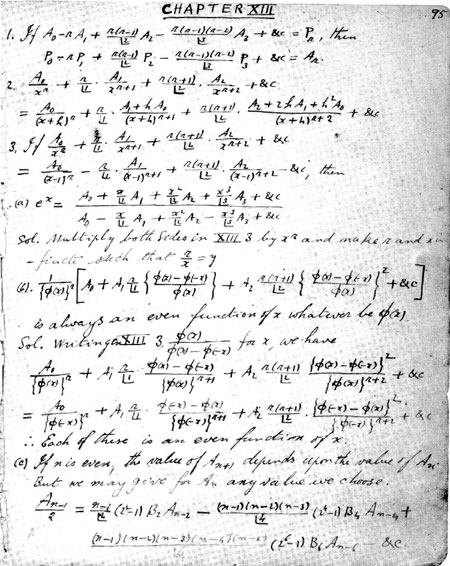 CHAPTER XIII
95
1. If A₀ - n A₁ + n(n-1)/⌊2 A₂ - n(n-1)(n-2)/⌊3 A₃ + &c = Pₙ, then
P₀ - n P₁ + n(n-1)/⌊2 P₂ - n(n-1)(n-2)/⌊3 P₃ + &c = Aₙ.
2. A₀/xⁿ + n/⌊1 · A₁/xⁿ⁺¹ + n(n+1)/⌊2 · A₂/xⁿ⁺² + &c
= A₀/(x+h)ⁿ + n/⌊1 · (A₁ + hA₀)/(x+h)ⁿ⁺¹ + n(n+1)/⌊2 · (A₂ + 2hA₁ + h²A₀)/(x+h)ⁿ⁺² + &c
3. If A₀/xⁿ + n/⌊1 · A₁/xⁿ⁺¹ + n(n+1)/⌊2 · A₂/xⁿ⁺² + &c
= A₀/(x-1)ⁿ - n/⌊1 · A₁/(x-1)ⁿ⁺¹ + n(n+1)/⌊2 · A₂/(x-1)ⁿ⁺² - &c, then
(a) eˣ = (A₀ + x/⌊1 A₁ + x²/⌊2 A₂ + x³/⌊3 A₃ + &c)/(A₀ - x/⌊1 A₁ + x²/⌊2 A₂ - x³/⌊3 A₃ + &c)
Sol. Multiply both sides in XIII 3 by xⁿ and make n and x in
-finite such that n/x = y
(b). 1/{φ(x)}ⁿ [A₀ + A₁ n/⌊1 {(φ(x) - φ(-x))/φ(x)} + A₂ n(n+1)/⌊2 {(φ(x) - φ(-x))/φ(x)}² + &c]
is always an even function of x whatever be φ(x)
Sol. Writing XIII 3 φ(x)/(φ(x) - φ(-x)) for x, we have
A₀/{φ(x)}ⁿ + A₁ n/⌊1 · (φ(x) - φ(-x))/{φ(x)}ⁿ⁺¹ + A₂ n(n+1)/⌊2 {φ(x) - φ(-x)}²/{φ(x)}ⁿ⁺² + &c
= A₀/{φ(-x)}ⁿ + A₁ n/⌊1 · (φ(-x) - φ(x))/{φ(-x)}ⁿ⁺¹ + A₂ n(n+1)/⌊2 · {φ(x) - φ(-x)}²/{φ(-x)}ⁿ⁺² + &c
∴ Each of these is an even function of x.
(c) If n is even, the value of Aₙ₊₁ depends upon the value of Aₙ.
But we may give for Aₙ any value we choose.
Aₙ₋₁/2 = (n-1)/⌊2 (2²-1) B₂ Aₙ₋₂ - (n-1)(n-2)(n-3)/⌊4 (2⁴-1) B₄ Aₙ₋₄ +
(n-1)(n-2)(n-3)(n-4)(n-5)/⌊6 (2⁶-1) B₆ Aₙ₋₆ - &c